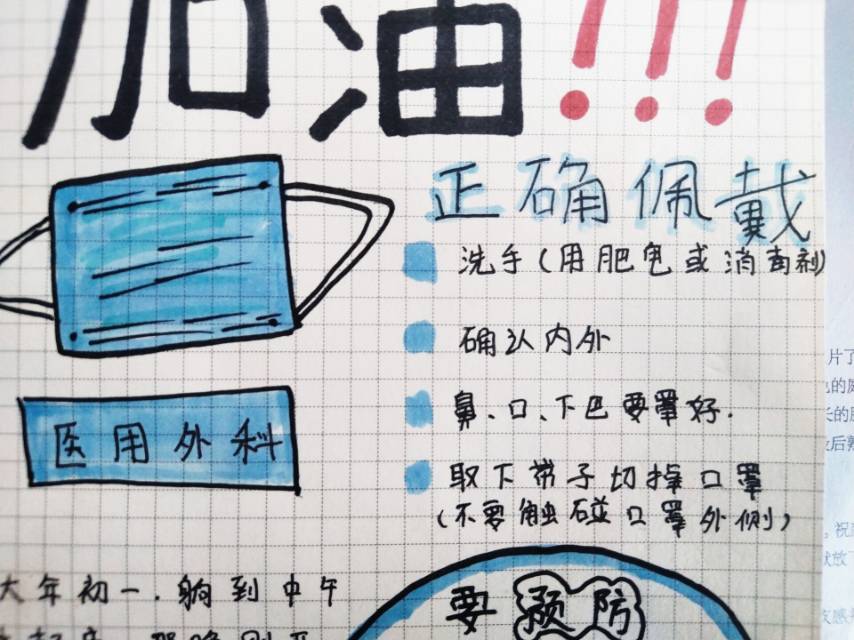 加油!!!
正确佩戴
洗手(用肥皂或消毒剂)
确认内外
鼻、口、下巴要罩好.
医用外科
取下带子切掉口罩
(不要触碰口罩外侧)
大年初一.躺到中午
要预防
片了